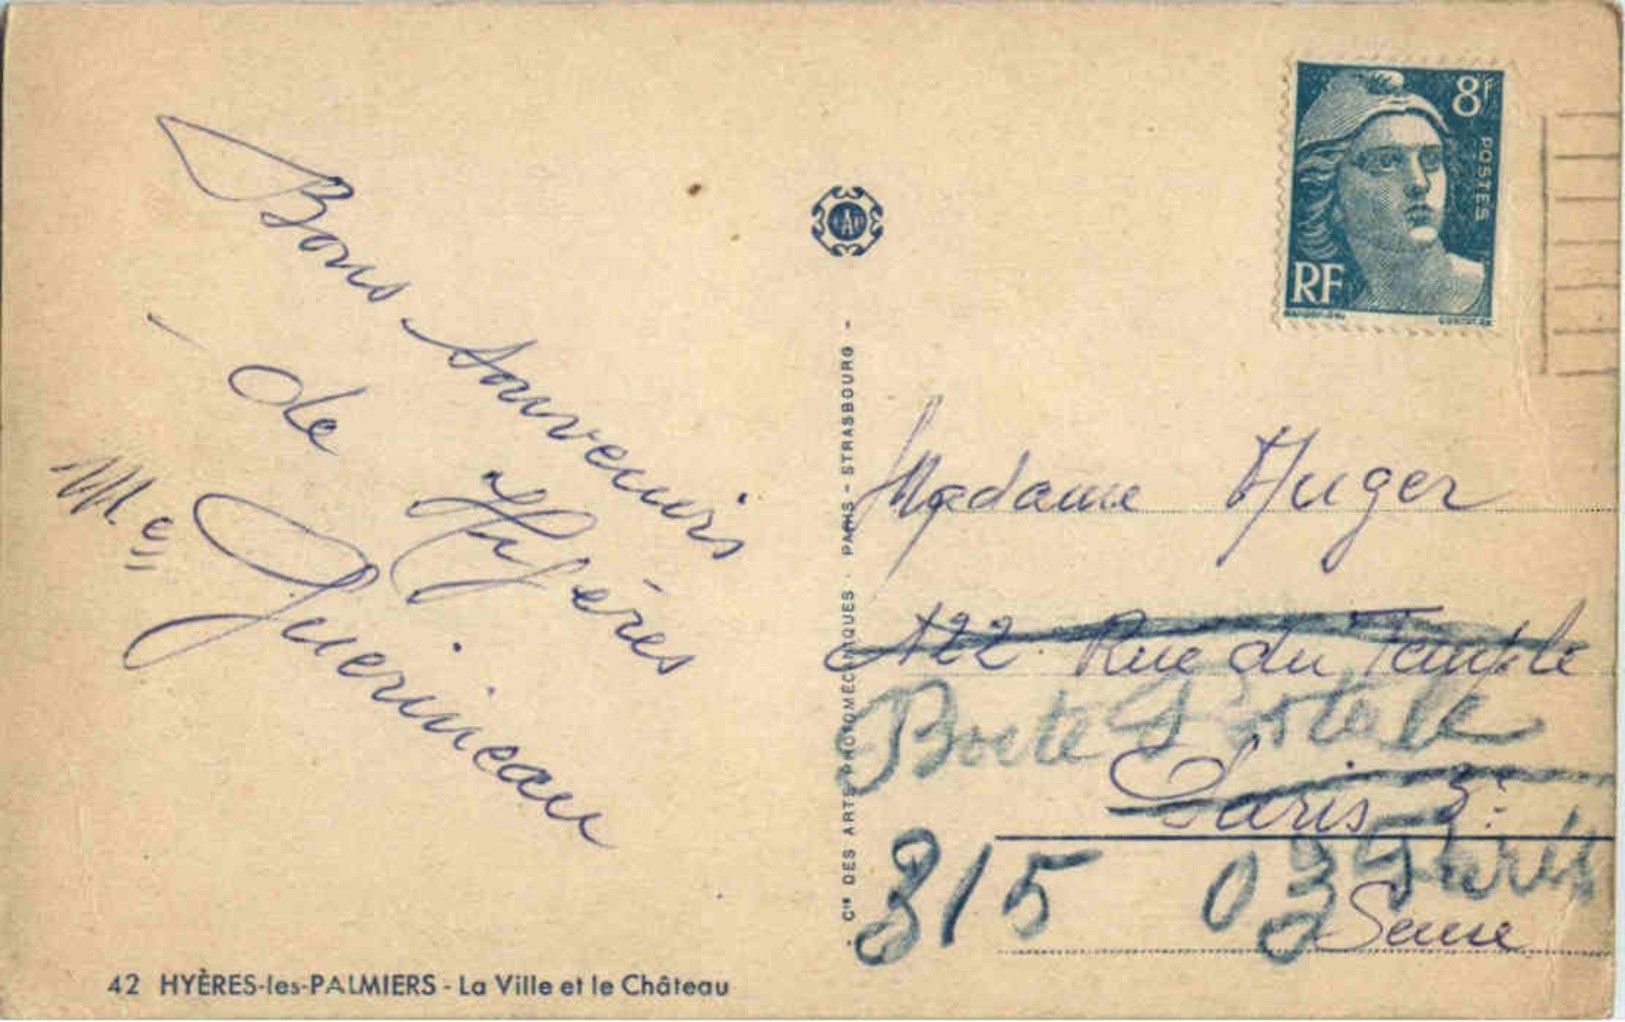 Bons souvenirs
de Hyères
Me Guerineau
42 HYÈRES-les-PALMIERS - La Ville et le Château
Cie DES ARTS PHOTOMÉCANIQUES - PARIS - STRASBOURG -
8F
POSTES
RF
Madame Auger
122 Rue du Temple
Boite Postale
Paris 3e
315 03 Paris
Seine